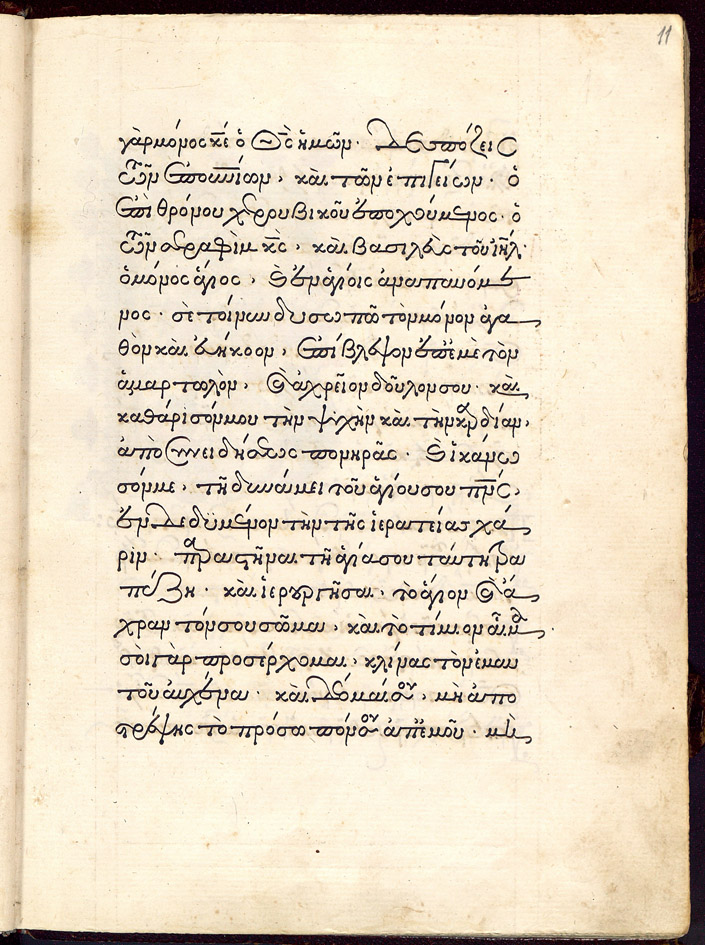 11
γὰρ μόνος κε̅ ὁ θς̅ ἡμῶν· δεσπόζεις
τῶν ἐπουνίων, καὶ τῶν ἐπιγείων· ὁ
ἐπὶ θρόνου χερουβικοῦ ἐποχούμενος· ὁ
τῶν σεραφὶμ κς̅, καὶ βασιλεὺς τοῦ ιηλ̅·
ὁ μόνος ἅγιος, ὁ ἐν ἁγίοις ἀναπαυόμε
νος· σὲ τοίνυν δυσωπῶ τὸν μόνον ἀγα
θὸν καὶ εὐήκοον, ἐπίβλεψον ἐπ' ἐμὲ τὸν
ἁμαρτωλὸν, καὶ ἀχρεῖον δοῦλον σου· καὶ
καθάρισόν μου τὴν ψυχὴν καὶ τὴν καρδίαν,
ἀπὸ συνειδήσεως πονηρᾶς· καὶ ἱκάνω
σόν με, τῇ δυνάμει τοῦ ἁγίου σου πνς̅,
ἐνδεδυμένον τὴν τῆς ἱερατείας χά
ριν· παραστῆναι τῇ ἁγίᾳ σου ταύτῃ τρα
πέζῃ· καὶ ἱερουργῆσαι, τὸ ἅγιον καὶ ἄ
χραντόν σου σῶμα, καὶ τὸ τίμιον αἷμα·
σοὶ γὰρ προσέρχομαι, κλίνας τὸν ἐμαυ
τοῦ αὐχένα· καὶ δέομαί σου, μὴ ἀπο
στρέψῃς τὸ πρόσωπόν σου ἀπ' ἐμοῦ· μὴ